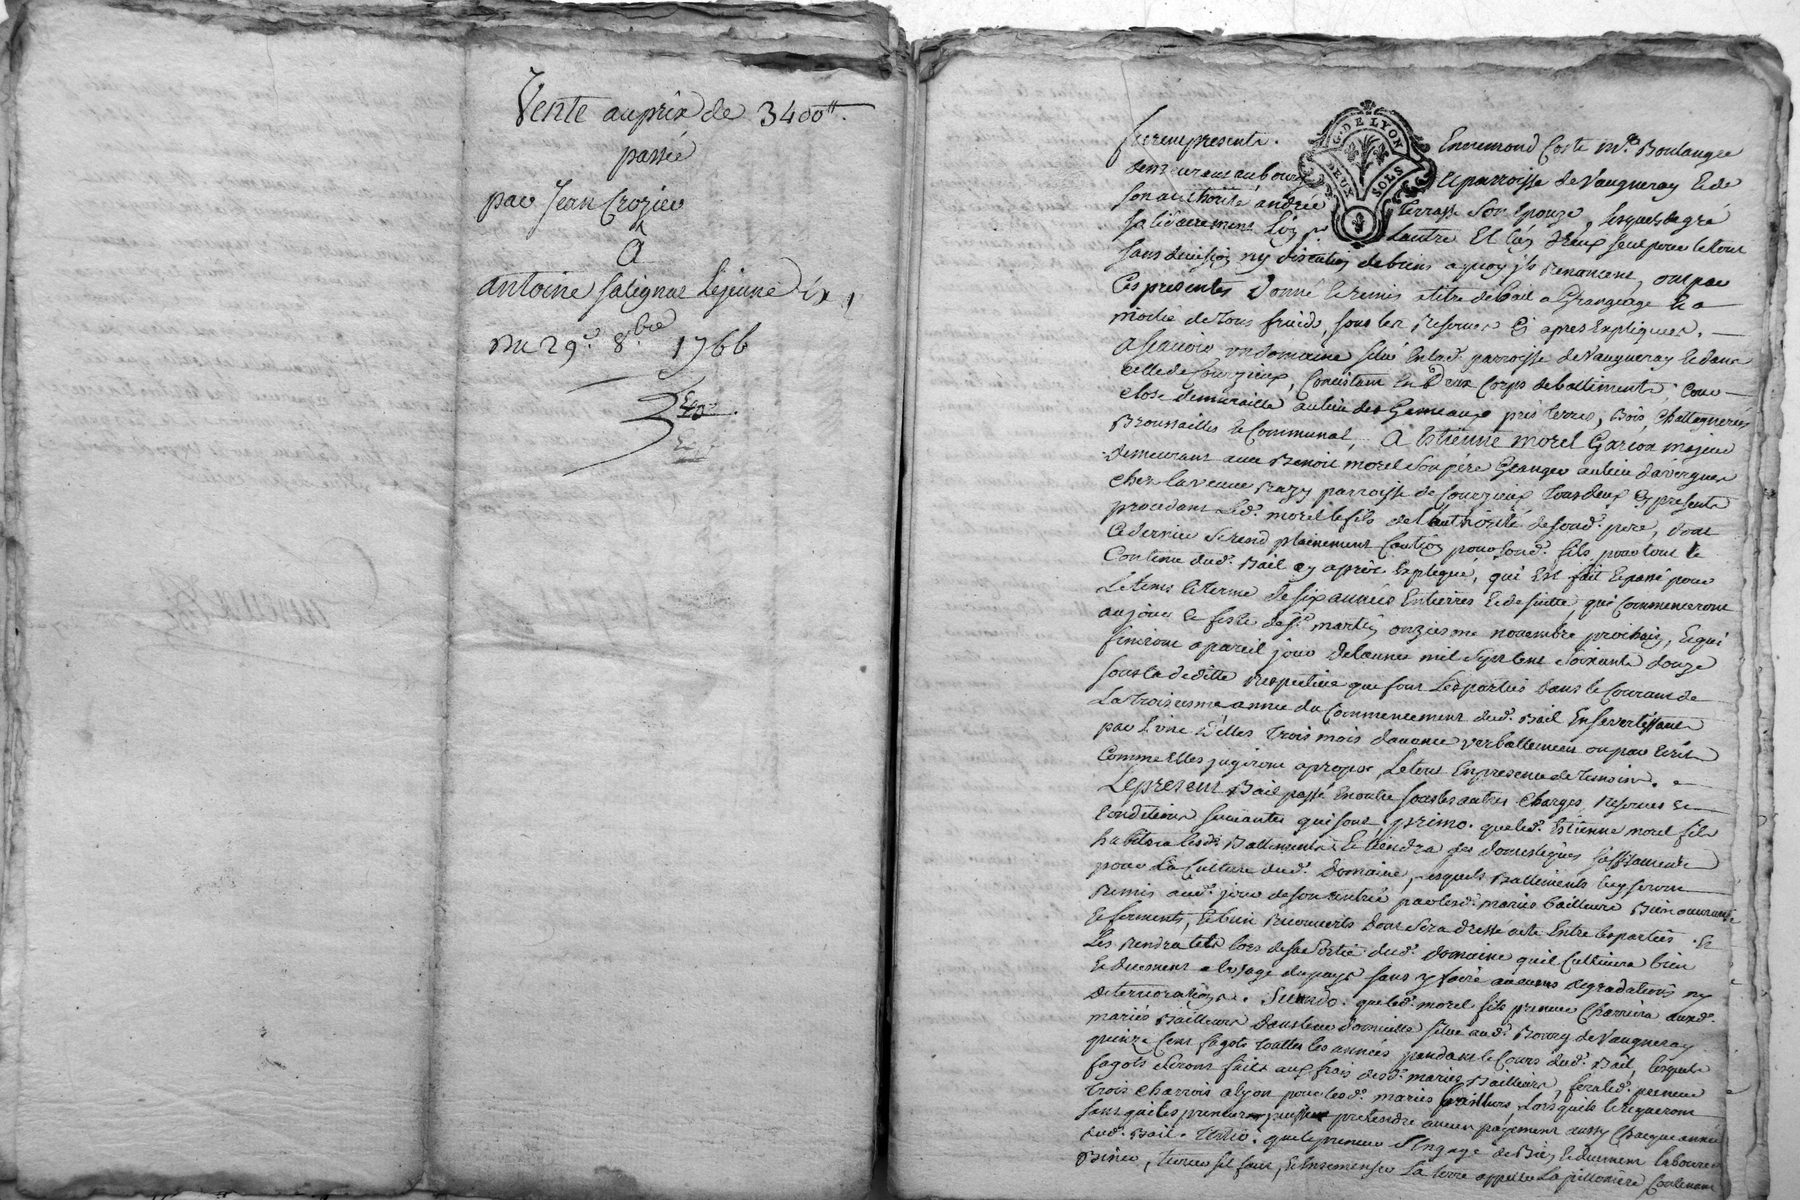 Vente au prix de 3400#.
passée
par Jean Crozier
A
antoine Salignat Lejeune
Du 29e. 8.bre 1766
G. DE LYON
DEUX SOLS
furent presents. Ennemond Coste Me. Boulanger
demeurant au bourg et parroisse de Vaugneray & de
son authorité andrée terrasse son Epouze, lesquels de gré
solidairement L'un pr L'autre Et L'un d'Eux seul pour le tout
sans division ny discution de biens a quoy ils Renoncent, ont par
Ces presentes donné & remis a titre de bail a Grangeage & a
moitié de tous fruids, sous les Reserves Cy apres Expliquées.
ascavoir un domaine situé En lad. parroisse de Vaugneray & dans
celle de Courzieux, Consistant En deux Corps de battiments, Cour
close de muraille au lieu des Gameaux prés terres, Bois, Chattagneriés
Broussailles & Communal, A Estienne morel Garcon majeur
demeurant avec Benoit morel Son pére Granger au lieu
chez la veuve Razy parroisse de Courzieux tous deux Cy presents
procedant Led. morel le fils de l'authorité de sond. pere, dont
Ce dernier se rend plainement Caution pour sond. fils, pour tout le
Contenu dud. Bail cy apres Expliqué, qui Est fait & passé pour
Le tems & terme de six années Entierres & de suitte, qui Commenceront
au jour & feste de St. martin onziesme novembre prochain, & qui
finiront a pareil jour de l'année mil Sept Cent Soixante douze
sous la déditte Respective que font Les parties dans le Courant de
La troisiesme année du Commencement dud. Bail En s'avertissant
par L'une d'Elles trois mois d'avance verballement ou par Ecrit
Comme Elles jugeront a propos, Le tout En presence de temoins.
Le present Bail passé En outre sous les autres Charges, Reserves &
Conditions suivantes qui sont, primo. que led. Estienne morel fils
habitera lesd. Battiments & tiendra des domestiques suffisamment
pour La Culture dud. Domaine, lesquels Battiments luy seront
Remis aud. jour de son entrée par lesd. mariés bailleurs Bien ouvrants
& ferments, & bien Recouverts dont sera dressé acte Entre les parties. &
Les Rendra tels lors de sa sortie dud. Domaine qu'il Cultivera bien
& duement a l'usage du pays sans y faire aucunes degradations ny
deteriorations. Secundo. que led. morel fils preneur Charriera auxd.
mariés Bailleurs dans leur domicille situé aud. Bourg de Vaugneray
quinze Cent fagots touttes les années pendant le Cours dud. Bail, lesquels
fagots seront faits aux frais desd. mariés Bailleurs, fera led. preneur
trois Charrois a lyon pour lesd. mariés Bailleurs, lorsqu'ils le requeront
sans que les preneurs puissent pretendre aucun payement aussy Chacque année
dud. Bail. Tertio. que le preneur s'Engage de Bien & duement labourer
Biner, tiercer s'il faut, & Ensemenser La terre appellée La pillonière Contenant